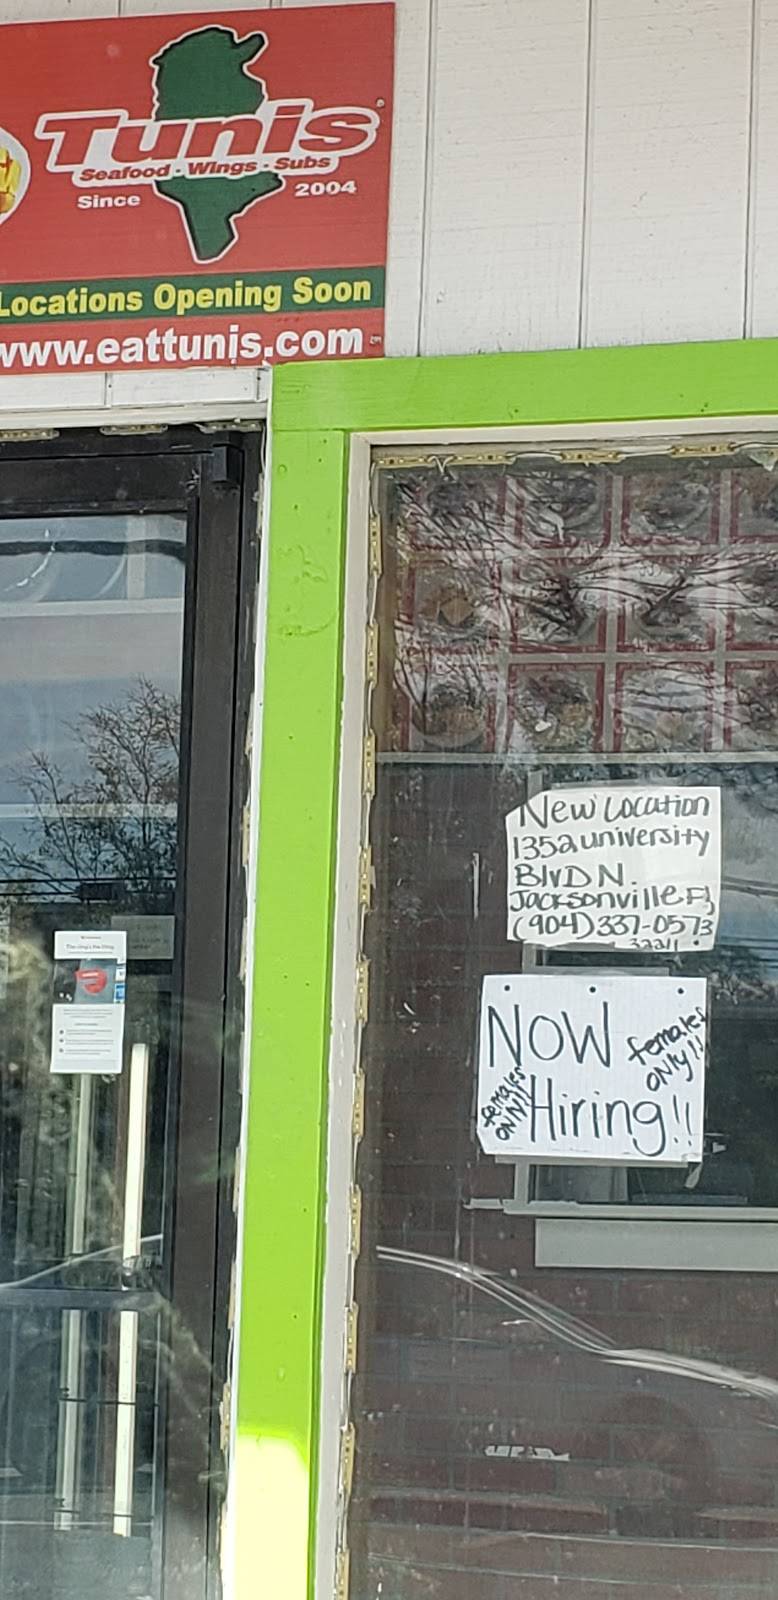 Tunis
Seafood - Wings - Subs
Since 2004
Locations Opening Soon
www.eattunis.com
New Location
1352 university
BlvD N.
Jacksonville Fl
(904) 337-0573
32211
NOW
females
ONly!!
Hiring!!
females